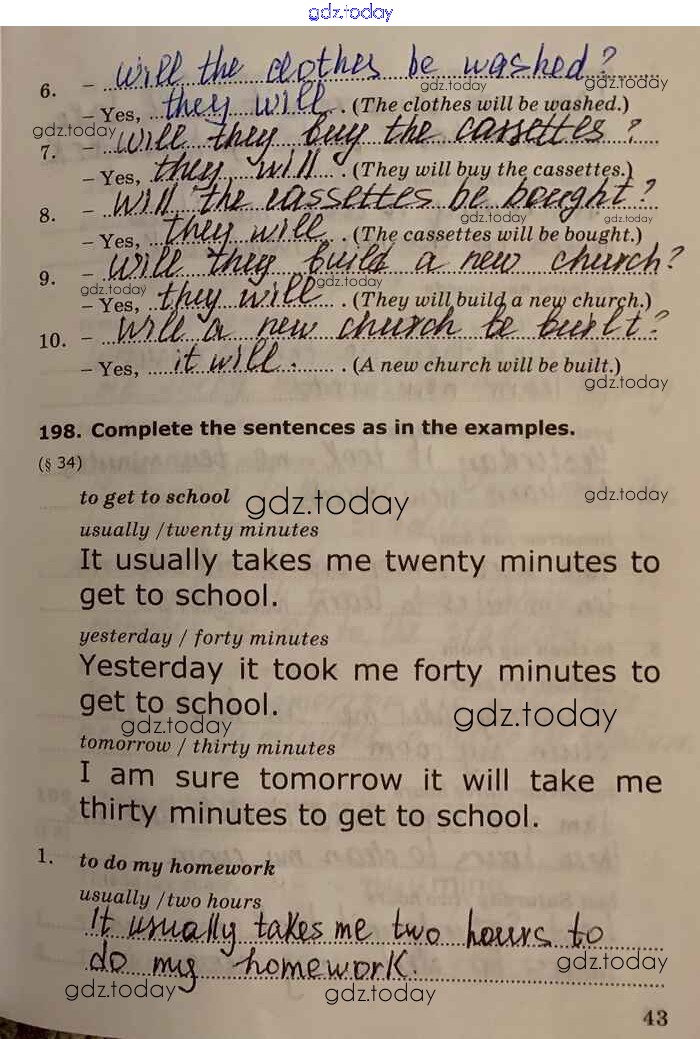 gdz.today
6. – will the clothes be washed?
gdz.today gdz.today
– Yes, they will. (The clothes will be washed.)
gdz.today
7. – will they buy the cassettes?
– Yes, they will. (They will buy the cassettes.)
gdz.today
8. – will the cassettes be bought?
gdz.today gdz.today
– Yes, they will. (The cassettes will be bought.)
9. – will they build a new church?
gdz.today gdz.today
– Yes, they will. (They will build a new church.)
10. – will a new church be built?
– Yes, it will. (A new church will be built.)
gdz.today
198. Complete the sentences as in the examples.
(§ 34)
to get to school
gdz.today gdz.today
usually / twenty minutes
It usually takes me twenty minutes to
get to school.
yesterday / forty minutes
Yesterday it took me forty minutes to
get to school.
gdz.today gdz.today
tomorrow / thirty minutes
I am sure tomorrow it will take me
thirty minutes to get to school.
1. to do my homework
usually / two hours
It usually takes me two hours to
do my homework.
gdz.today
gdz.today gdz.today
43